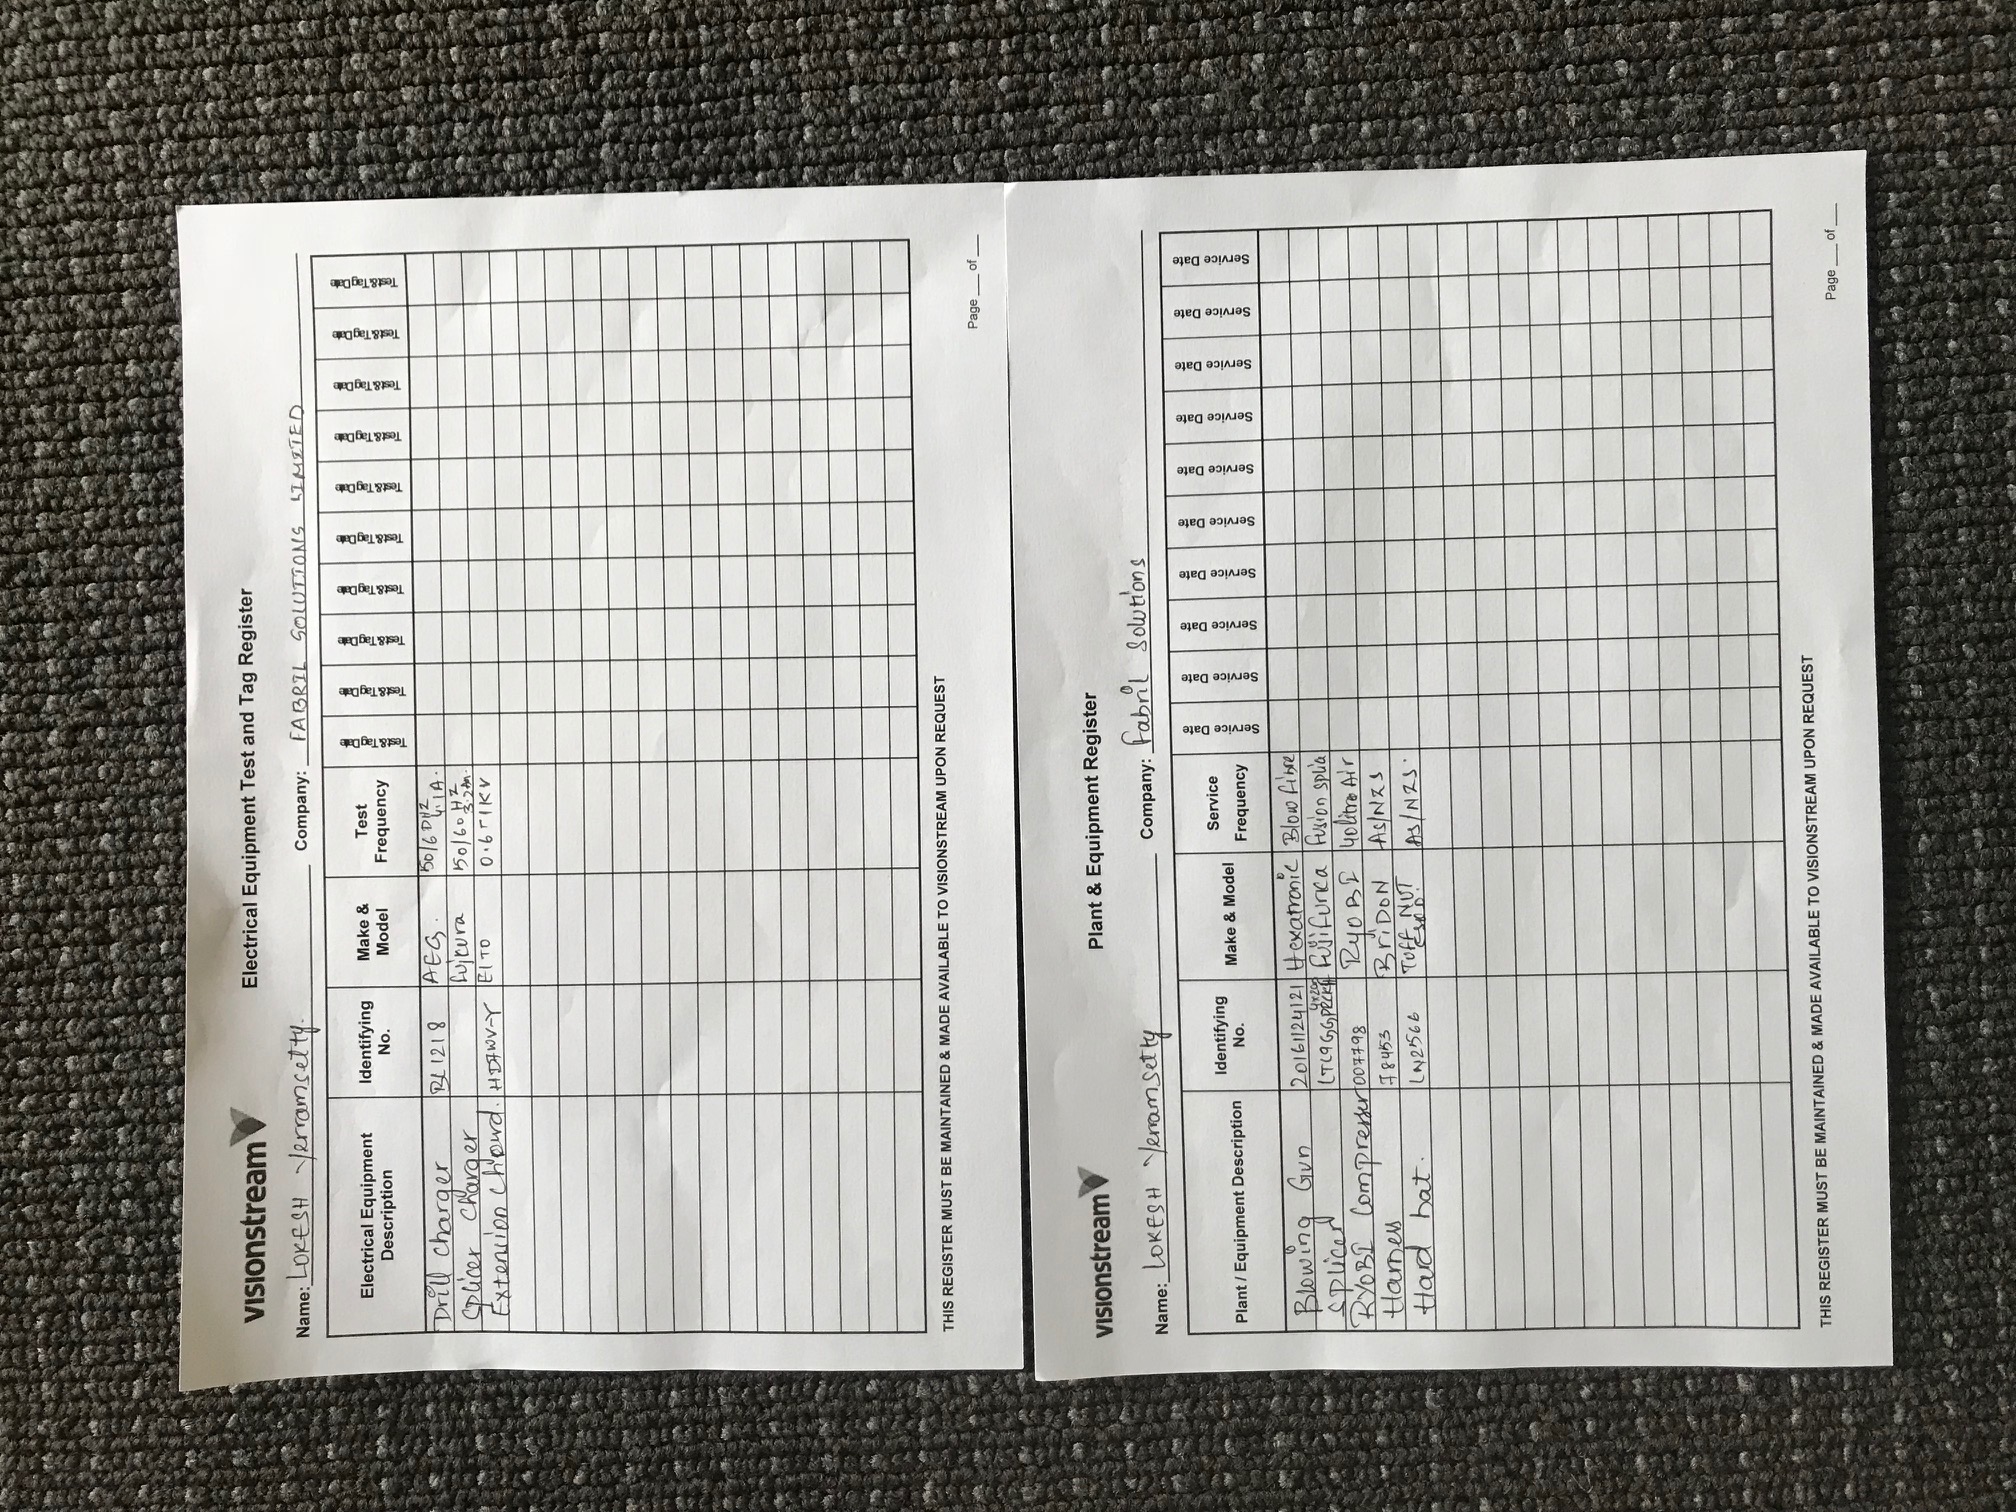 visionstream
Electrical Equipment Test and Tag Register
Name: LOKESH Yerramsetty. Company: FABRIL SOLUTIONS LIMITED
Electrical Equipment Description Identifying No. Make & Model Test Frequency Test & Tag Date Test & Tag Date Test & Tag Date Test & Tag Date Test & Tag Date Test & Tag Date Test & Tag Date Test & Tag Date Test & Tag Date Test & Tag Date
Drill charger BL1218 AEG. 50/60HZ 4.1A.
Splicer Charger fujikura 50/60 HZ
Extension chord. EITO
THIS REGISTER MUST BE MAINTAINED & MADE AVAILABLE TO VISIONSTREAM UPON REQUEST
Page ___ of ___
visionstream
Plant & Equipment Register
Name: LOKESH Yerramsetty Company: Fabril Solutions
Plant / Equipment Description Identifying No. Make & Model Service Frequency Service Date Service Date Service Date Service Date Service Date Service Date Service Date Service Date Service Date Service Date
Blowing Gun 20161124121 Hexatronic Blow fibre
Splicer Fujifurica fusion splia
RYOBI Compresser 007798 RYOBI 40litre Air
Harness 78453 BRIDON AS/NZS
Hard hat. LN2566 TUFF NUT AS/NZS.
THIS REGISTER MUST BE MAINTAINED & MADE AVAILABLE TO VISIONSTREAM UPON REQUEST
Page ___ of ___